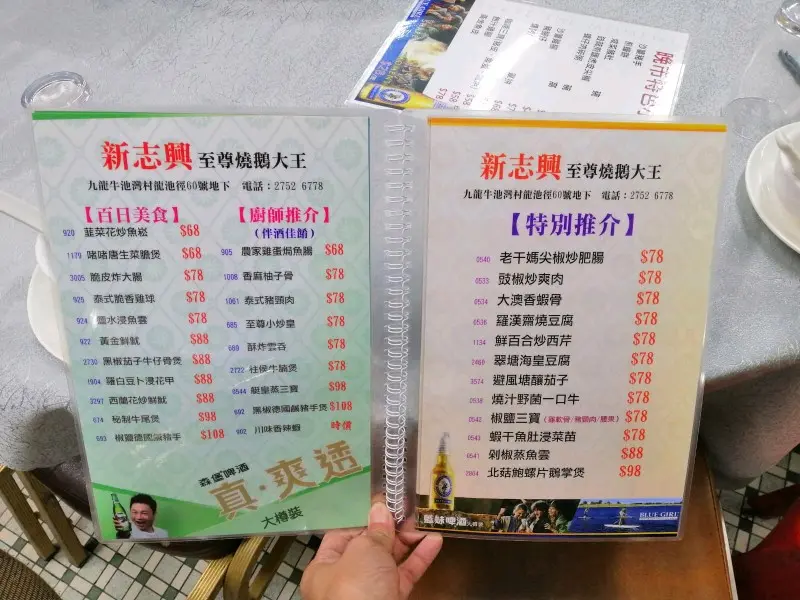 新志興 至尊燒鵝大王
九龍牛池灣村龍池徑60號地下 電話：2752 6778
【百日美食】
920 韮菜花炒魚崧 $68
1179 啫啫唐生菜膽煲 $68
3005 脆皮炸大腸 $78
925 泰式脆香雞球 $78
924 鹽水浸魚雲 $78
922 黃金鮮魷 $88
2730 黑椒茄子牛仔骨煲 $88
1904 羅白豆卜浸花甲 $88
3297 西蘭花炒鮮魷 $88
674 秘制牛尾煲 $98
693 椒鹽德國咸豬手 $108
【廚師推介】
（伴酒佳餚）
905 農家雞蛋焗魚腸 $68
1008 香麻柚子骨 $78
1061 泰式豬頸肉 $78
685 至尊小炒皇 $78
689 酥炸雲吞 $78
2722 柱侯牛腩煲 $78
0544 艇皇蒸三寶 $98
692 黑椒德國鹹豬手煲 $108
902 川味香辣蝦 時價
森堡啤酒
真·爽透
大樽裝
新志興 至尊燒鵝大王
九龍牛池灣村龍池徑60號地下 電話：2752 6778
【特別推介】
0540 老干媽尖椒炒肥腸 $78
0533 豉椒炒爽肉 $78
0534 大澳香蝦骨 $78
0536 羅漢齋燒豆腐 $78
1134 鮮百合炒西芹 $78
2469 翠塘海皇豆腐 $78
3574 避風塘釀茄子 $78
0538 燒汁野菌一口牛 $78
0542 椒鹽三寶（雞軟骨/豬頸肉/腰果） $78
0543 蝦干魚肚浸菜苗 $78
0541 剁椒蒸魚雲 $88
2864 北菇鮑螺片鵝掌煲 $98
藍妹啤酒
BLUE GIRL
晚市特色小